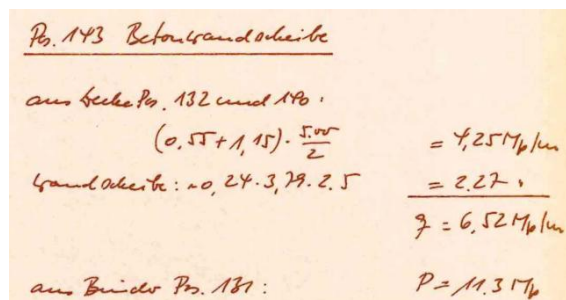 Pos. 143 Betonwandscheibe
aus Decke Pos. 132 und 140:
(0,55+1,15)·5.00/2 = 4,25 Mp/m
Wandscheibe: ~0,24·3,79·2.5 = 2.27 "
q = 6,52 Mp/m
aus Binder Pos. 131: P = 11.3 Mp